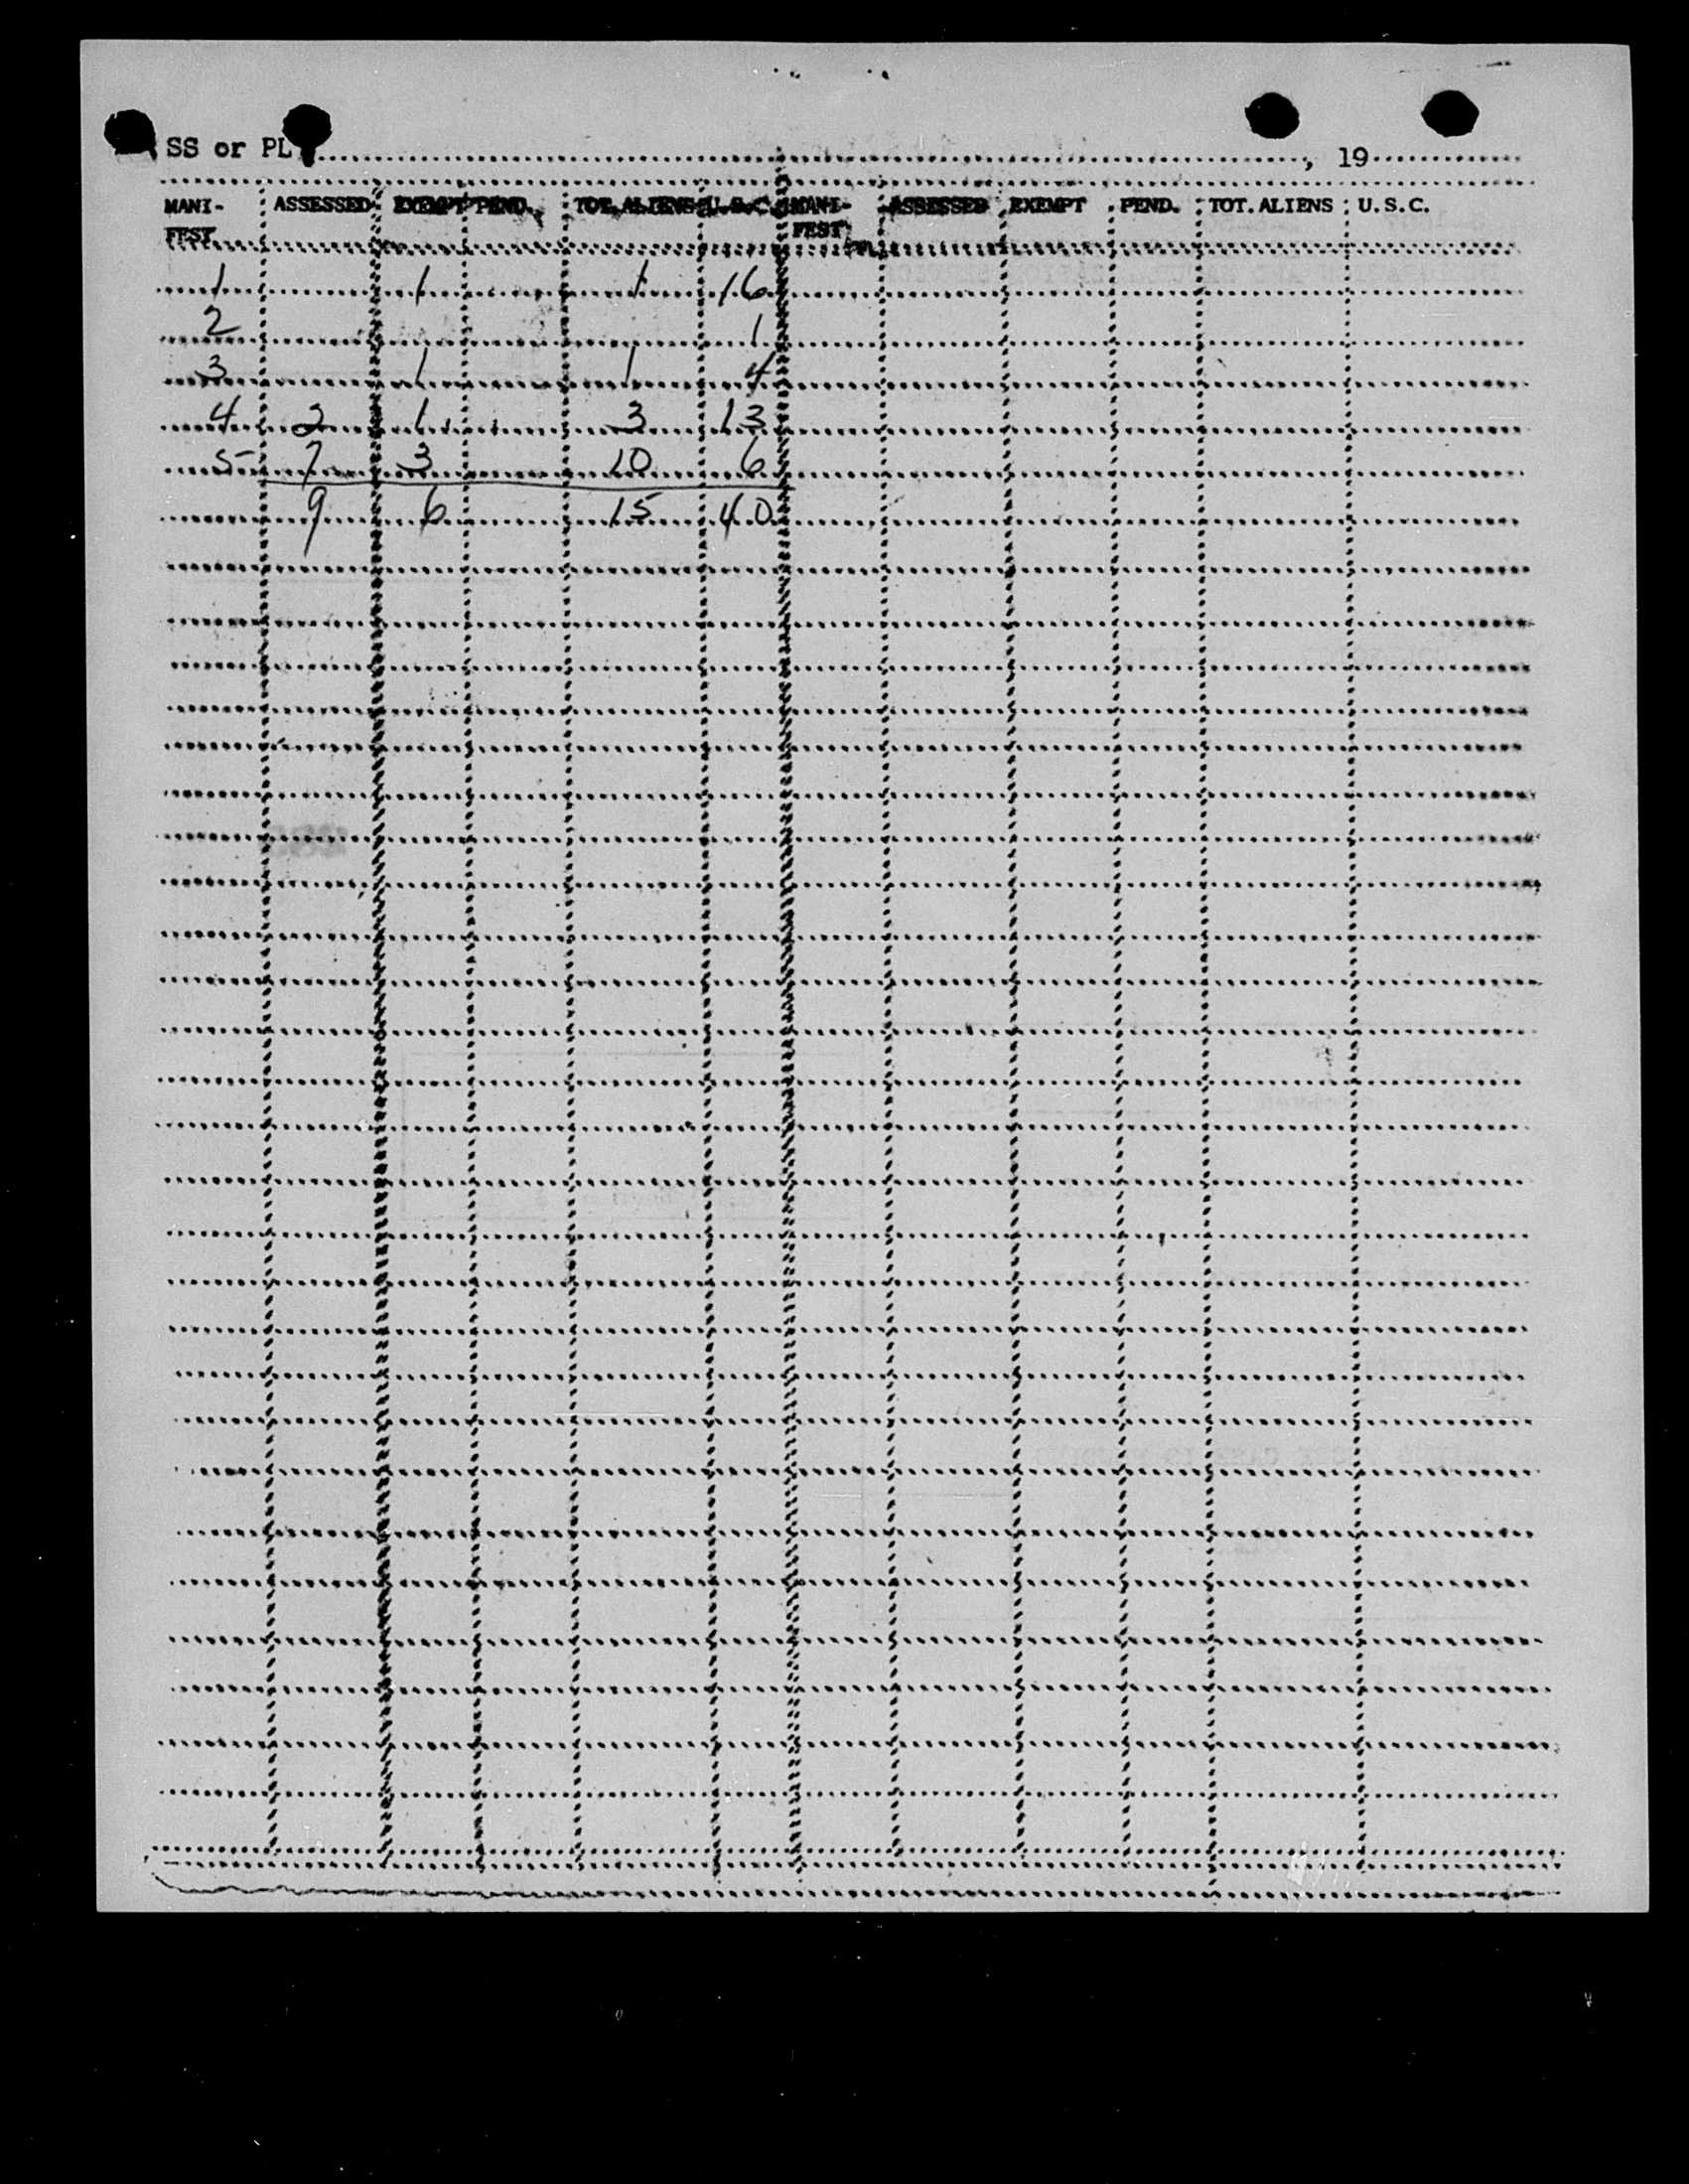 SS or PL , 19
MANI- ASSESSED EXEMPT PEND. TOT. ALIENS U.S.C. MANI- ASSESSED EXEMPT PEND. TOT. ALIENS U.S.C.
FEST FEST
1 1 1 16
2 1
3 1 1 4
4 2 1 3 13
5 7 3 10 6
9 6 15 40